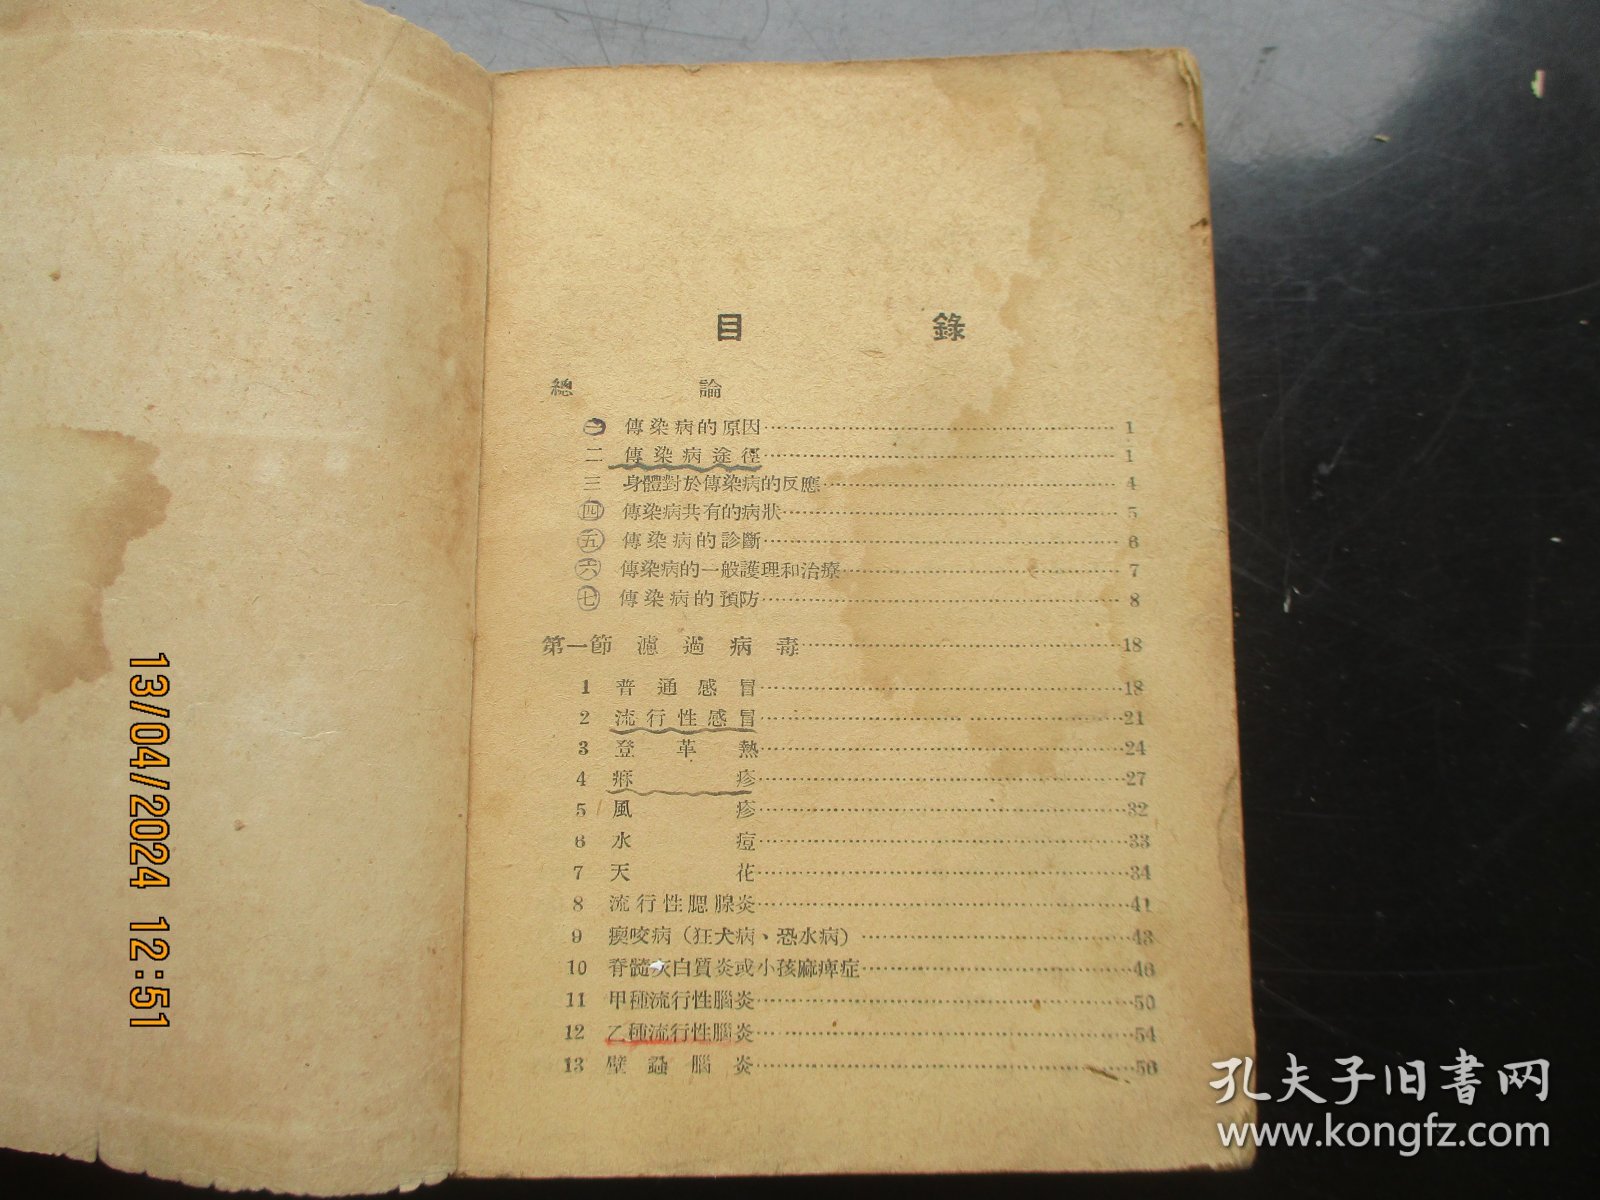 目錄
總論
一 傳染病的原因 1
二 傳染病途徑 1
三 身體對於傳染病的反應 4
四 傳染病共有的病狀 5
五 傳染病的診斷 6
六 傳染病的一般護理和治療 7
七 傳染病的預防 8
第一節 濾過病毒 18
1 普通感冒 18
2 流行性感冒 21
3 登革熱 24
4 痳疹 27
5 風疹 32
6 水痘 33
7 天花 34
8 流行性腮腺炎 41
9 瘈咬病(狂犬病、恐水病) 43
10 脊髓灰白質炎或小孩麻痺症 46
11 甲種流行性腦炎 50
12 乙種流行性腦炎 54
13 壁蝨腦炎 56
13/04/2024 12:51
孔夫子旧书网
www.kongfz.com